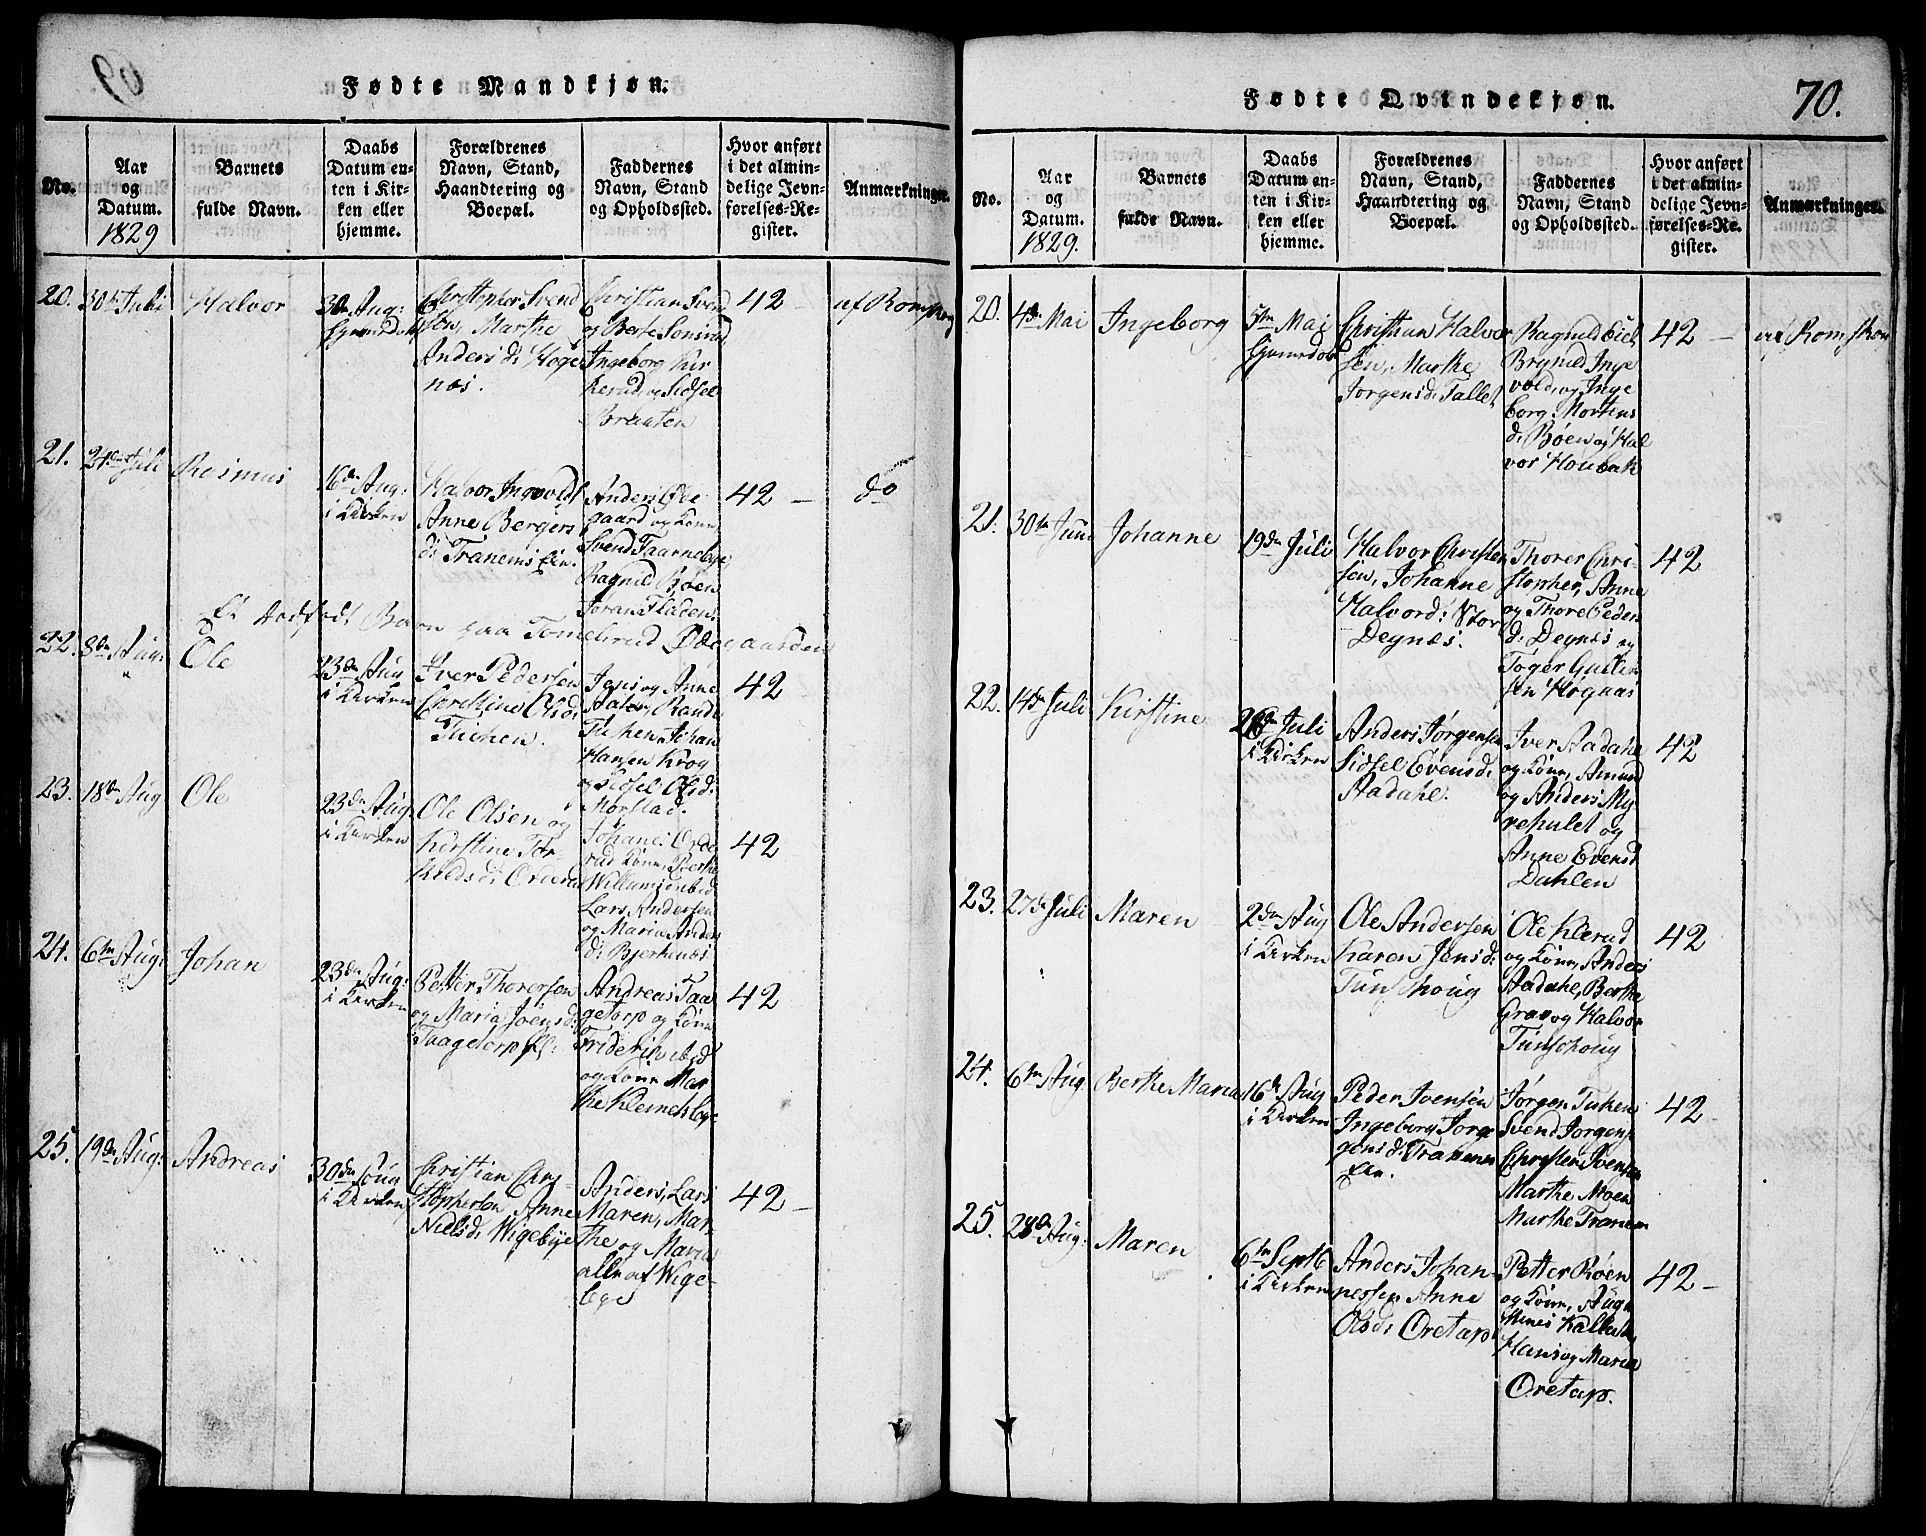 Fødte Mandkjøn.
No.
Aar
og
Datum.
1829
Barnets
fulde Navn.
Daabs
Datum en-
ten i Kir-
ken eller
hjemme.
Forældrenes
Navn, Stand,
Haandtering og
Boepæl.
Faddernes
Navn, Stand
og Opholdssted.
Hvor anført
i det almin-
delige Jevn-
førelses-Re-
gister.
Anmærkninger.
20.
30te Juli
Halvor
Aug:
Christopher Svend
sen, Marthe
Anders d:
næs.
Christian Svend
og Berte
Ingeborg Kir
kerud, og Sidsel
Braaten
42
af Romskog
21.
Juli
Rasmus
16de Aug:
i Kirken
Halvor Ingvolds
Anne Bergers
d: Tranems Ein.
Anders Øde
gaard og Kone
Svend Taarneby
Ragnild Røen
Joran
42 —
do
Et dødfødt Barn paa Tomelerud Ødegaarden
22.
8de Aug:
Ole
23de Aug
i Kirken
Iver Pedersen
Christine Olsd:
Tuchen.
Jens og Anne
Rande
Tuchen, Johan
Hansen Krog
og Sidsel Olsd:
Morstad.
42
23.
18de Aug
Ole
23de Aug:
i Kirken
Ole Olsen og
Kirstine Tor-
kildsd:
Johanes
rud Kone, Berthe
Lars Andersen
og Maria Anders
d: Bjerkenæs
42
24.
6te Aug:
Johan
23de Aug:
i Kirken
Petter Thorersen
og Maria Joensd:
Taagetorp
Andreas Taa
getorp og Kone
Friderik ibid
og Kone Mar
the Klemetsbye
42
25.
19de Aug:
Andreas
30de Aug
i Kirken
Christian Chri-
stophersen Anne
Nielsd: Wigebye
Anders, Lars
Maren, Mar-
the og Maria
alle af Wige-
bye
42 —
Fødte Qvindekjøn.
70.
No.
Aar
og
Datum.
1829.
Barnets
fulde Navn.
Daabs
Datum en-
ten i Kir-
ken eller
hjemme.
Forældrenes
Navn, Stand,
Haandtering og
Boepæl.
Faddernes
Navn, Stand
og Opholdssted.
Hvor anført
i det almin-
delige Jevn-
førelses-Re-
gister.
Anmærkninger.
20.
4de Mai
Ingeborg
5te Mai
hjemmedøbt
Christian Halvor
sen, Marthe
Jorgensd: Tallet
Ragnild
Brynild Inge
vold, og Inge
borg Mortens
d: Røen og Hal
vor Houbak
42 —
af Romskog
21.
30te Juni
Johanne
19de Juli
Halvor Christen
sen, Johanne
Halvord: Stor
Degnæs.
Thorer Chri-
stopher, Anne
og Thore Peders
d: Degnæs og
Toger Gulbr
sen Høgnæs
42
22.
14de Juli
Kirstine
26de Juli
i Kirken
Anders Jørgensen
Sidsel Evensd:
Aadahl.
Iver Aadahl
og Kone, Amund
og Anders My
rehulet og
Anne Evensd
Dahlen
42
23.
27de Juli
Maren
2den Aug
i Kirken
Ole Andersen
Karen Jensd:
Tunschoug
Ole Klerud
og Kone, Anders
Aadahl, Berthe
Grav og Halvor
Tunschoug
42
24.
6te Aug.
Berthe Maria
16de Aug
i Kirken
Peder Ivensen
Ingeborg Jorge
gensd: Tranem
Ein.
Jørgen Tuken
Svend Jorgens
Christen Svensen
Marthe Moen
Marthe Tranem
42
25.
28de Aug:
Maren
6te Septb
i Kirken
Anders Johan-
nessen Anne
Olsd: Oretarp
Petter Røen
og Kone, Augu
stinus
Hans og Maria
Oretarp.
42 —